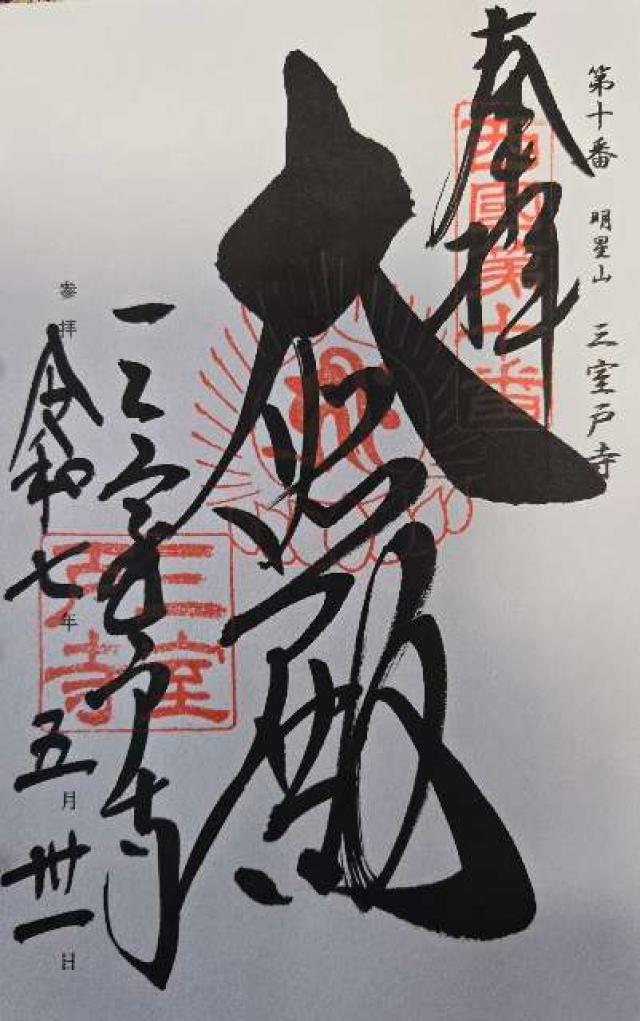 第十番 明星山 三室戸寺
奉拝
西國第十番
大悲殿
三室戸寺
三室戸寺
参拝 令和七年五月卅一日